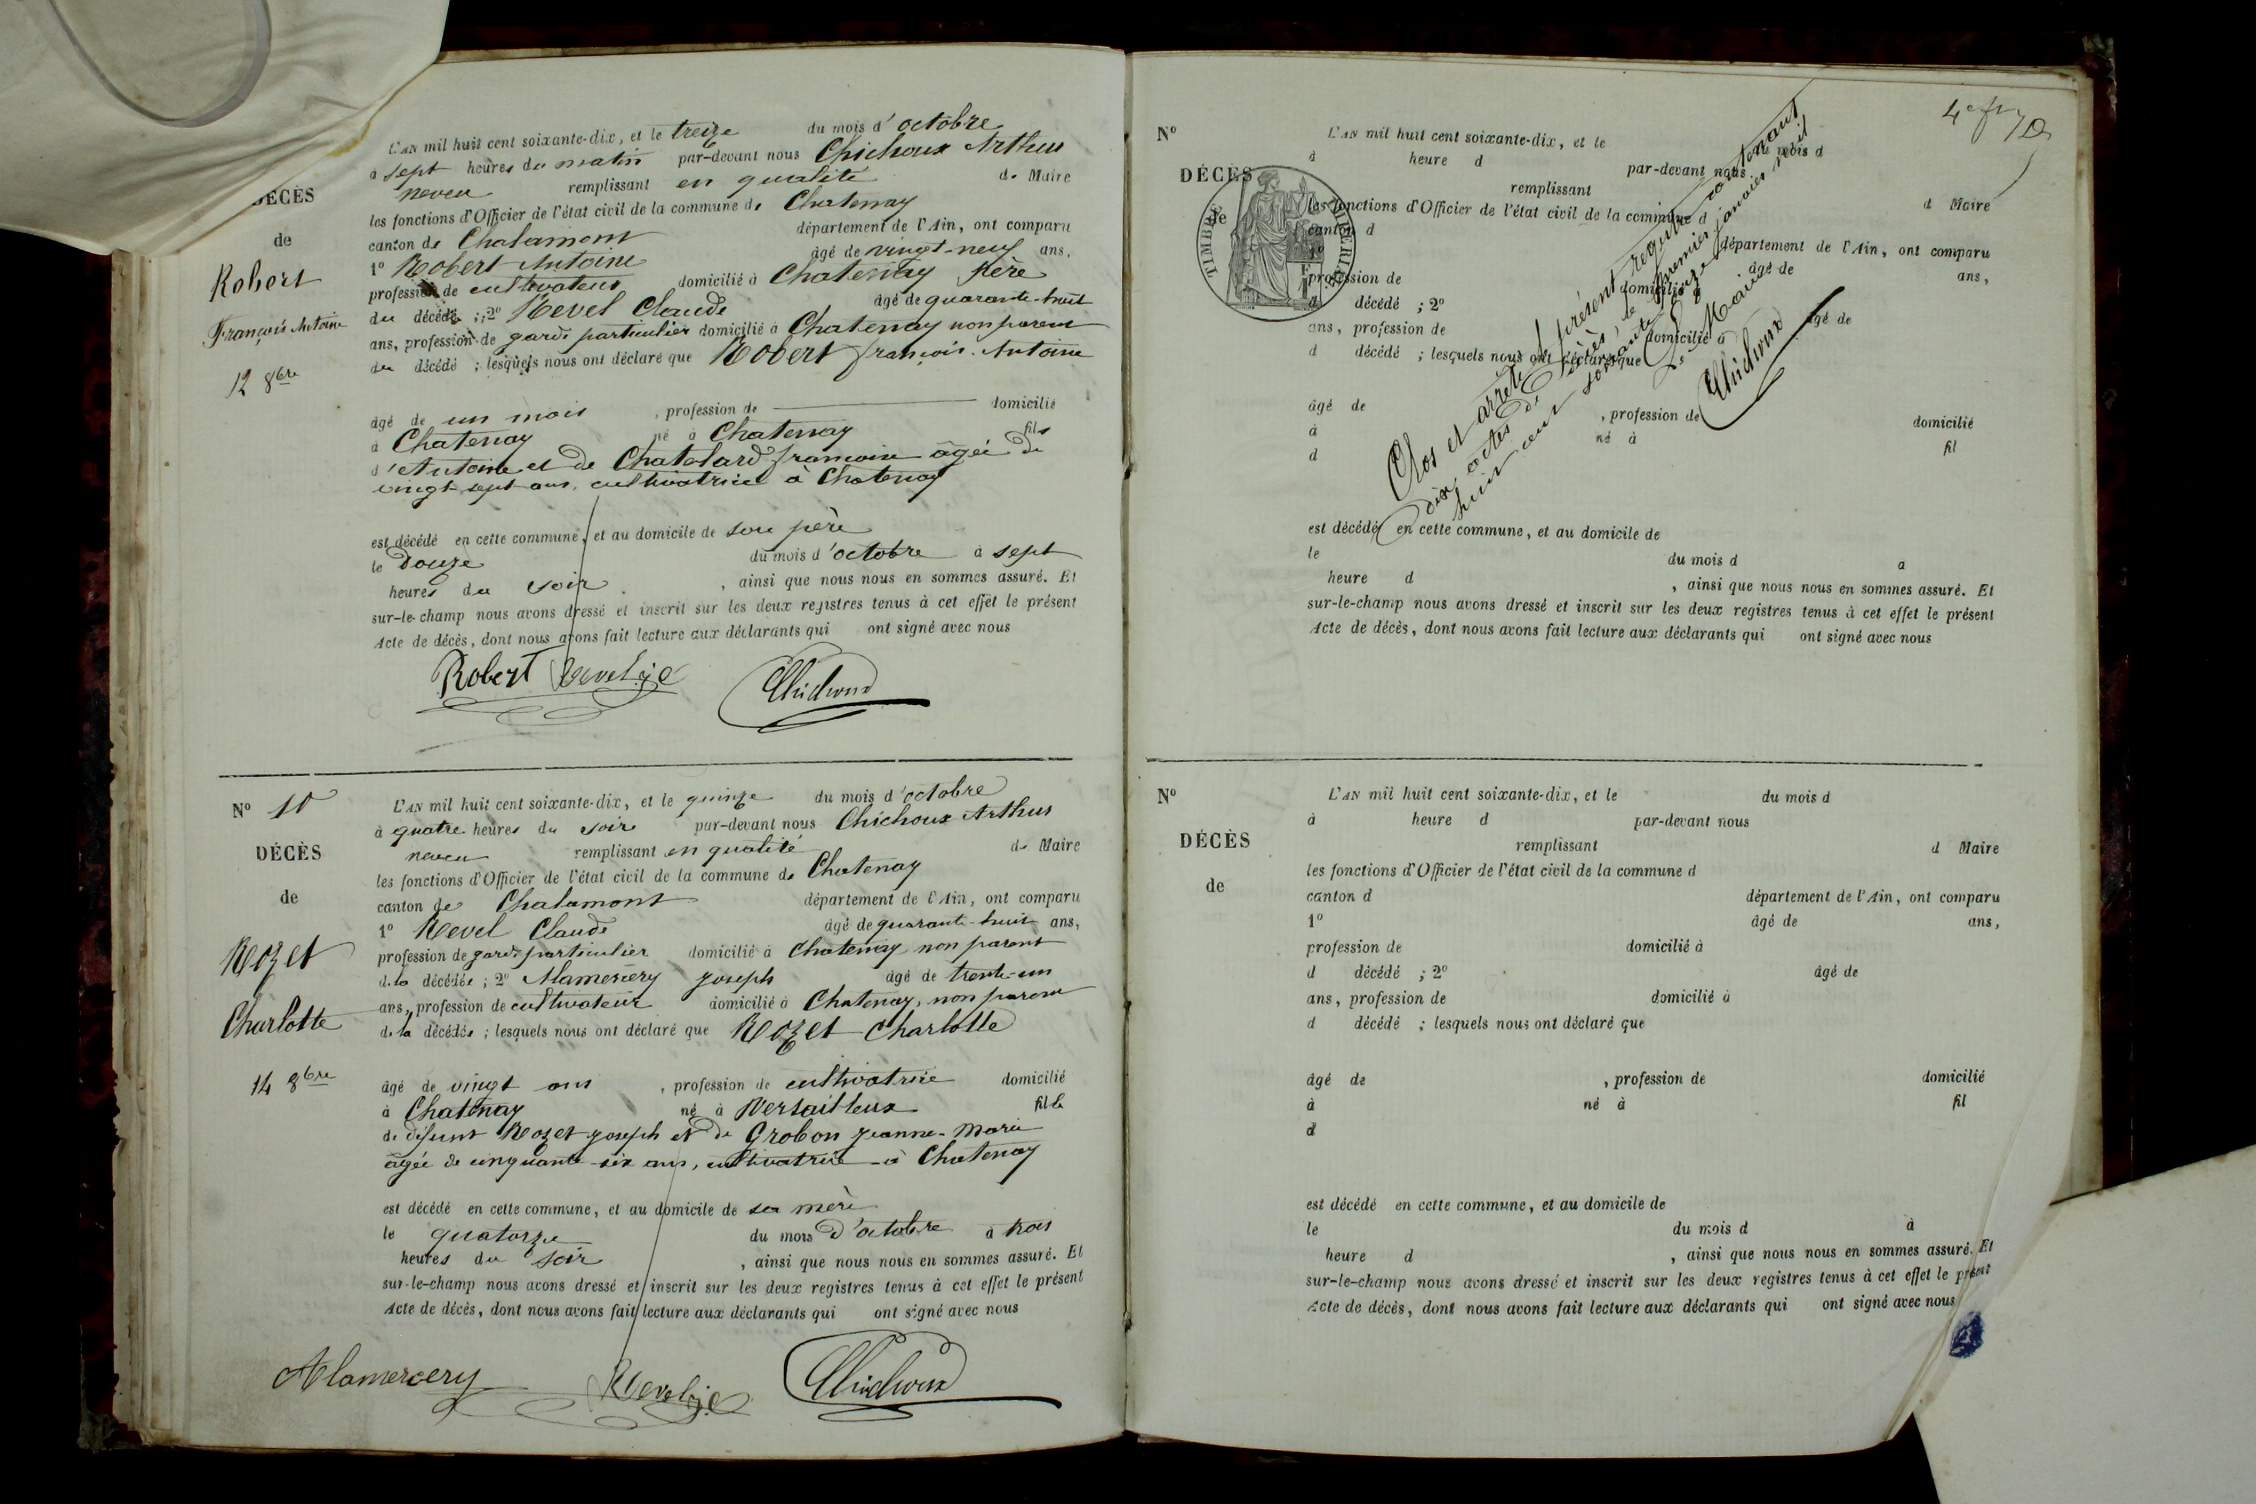 DÉCÈS
de
Robert
François Antoine
12 8bre
L'AN mil huit cent soixante-dix, et le treize du mois d'octobre
à sept heures du matin par-devant nous Chichoux Arthur
neveu remplissant en qualité de Maire
les fonctions d'Officier de l'état civil de la commune de Chatenay
canton de Chalamont département de l'Ain, ont comparu
1º Robert Antoine âgé de vingt-neuf ans,
profession de cultivateur domicilié à Chatenay père
du décédé ; 2º Revel Claude âgé de quarante-huit
ans, profession de garde particulier domicilié à Chatenay non parent
du décédé ; lesquels nous ont déclaré que Robert françois-Antoine
âgé de un mois , profession de domicilié
à Chatenay né à Chatenay fils
d'Antoine et de Chatelard françoise âgée de
vingt-sept ans, cultivatrice à Chatenay
est décédé en cette commune, et au domicile de son père
le Douze du mois d'octobre à sept
heures du soir , ainsi que nous nous en sommes assuré. Et
sur-le-champ nous avons dressé et inscrit sur les deux registres tenus à cet effet le présent
Acte de décès, dont nous avons fait lecture aux déclarants qui ont signé avec nous
Robert Revel Chichoux
Nº 10
DÉCÈS
de
Rozet
Charlotte
14 8bre
L'AN mil huit cent soixante-dix, et le quinze du mois d'octobre
à quatre heures du soir par-devant nous Chichoux Arthur
neveu remplissant en qualité de Maire
les fonctions d'Officier de l'état civil de la commune de Chatenay
canton de Chalamont département de l'Ain, ont comparu
1º Revel Claude âgé de quarante-huit ans,
profession de garde particulier domicilié à Chatenay non parent
de la décédée ; 2º Alamercery joseph âgé de trente-un
ans, profession de cultivateur domicilié à Chatenay, non parent
de la décédée ; lesquels nous ont déclaré que Rozet Charlotte
âgé de vingt ans , profession de cultivatrice domicilié
à Chatenay né à Versailleux fille
de défunt Rozet joseph et de Grobon jeanne-Marie
âgée de cinquante-six ans, cultivatrice à Chatenay
est décédé en cette commune, et au domicile de sa mère
le quatorze du mois d'octobre à trois
heures du soir , ainsi que nous nous en sommes assuré. Et
sur-le-champ nous avons dressé et inscrit sur les deux registres tenus à cet effet le présent
Acte de décès, dont nous avons fait lecture aux déclarants qui ont signé avec nous
Alamercery Revel Chichoux
Nº
DÉCÈS
de
TIMBRE IMPÉRIAL
L'AN mil huit cent soixante-dix, et le du mois d
à heure d par-devant nous
remplissant d Maire
les fonctions d'Officier de l'état civil de la commune d
canton d département de l'Ain, ont comparu
1º âgé de ans,
profession de domicilié à
d décédé ; 2º âgé de
ans, profession de domicilié à
d décédé ; lesquels nous ont déclaré que
âgé de , profession de domicilié
à né à fil
d
est décédé en cette commune, et au domicile de
le du mois d à
heure d , ainsi que nous nous en sommes assuré. Et
sur-le-champ nous avons dressé et inscrit sur les deux registres tenus à cet effet le présent
Acte de décès, dont nous avons fait lecture aux déclarants qui ont signé avec nous
Clos et arrêté le présent registre contenant
dix actes de Décès, le premier janvier mil
huit cent soixante onze
Le Maire
Chichoux
Nº
DÉCÈS
de
L'AN mil huit cent soixante-dix, et le du mois d
à heure d par-devant nous
remplissant d Maire
les fonctions d'Officier de l'état civil de la commune d
canton d département de l'Ain, ont comparu
1º âgé de ans,
profession de domicilié à
d décédé ; 2º âgé de
ans, profession de domicilié à
d décédé ; lesquels nous ont déclaré que
âgé de , profession de domicilié
à né à fil
d
est décédé en cette commune, et au domicile de
le du mois d à
heure d , ainsi que nous nous en sommes assuré. Et
sur-le-champ nous avons dressé et inscrit sur les deux registres tenus à cet effet le présent
Acte de décès, dont nous avons fait lecture aux déclarants qui ont signé avec nous